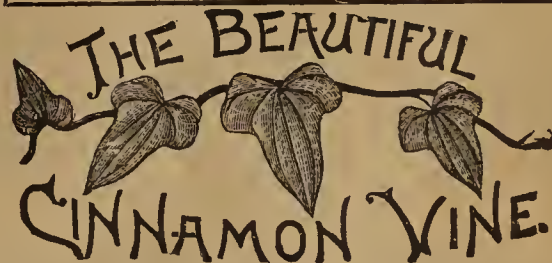 THE BEAUTIFUL
CINNAMON VINE.